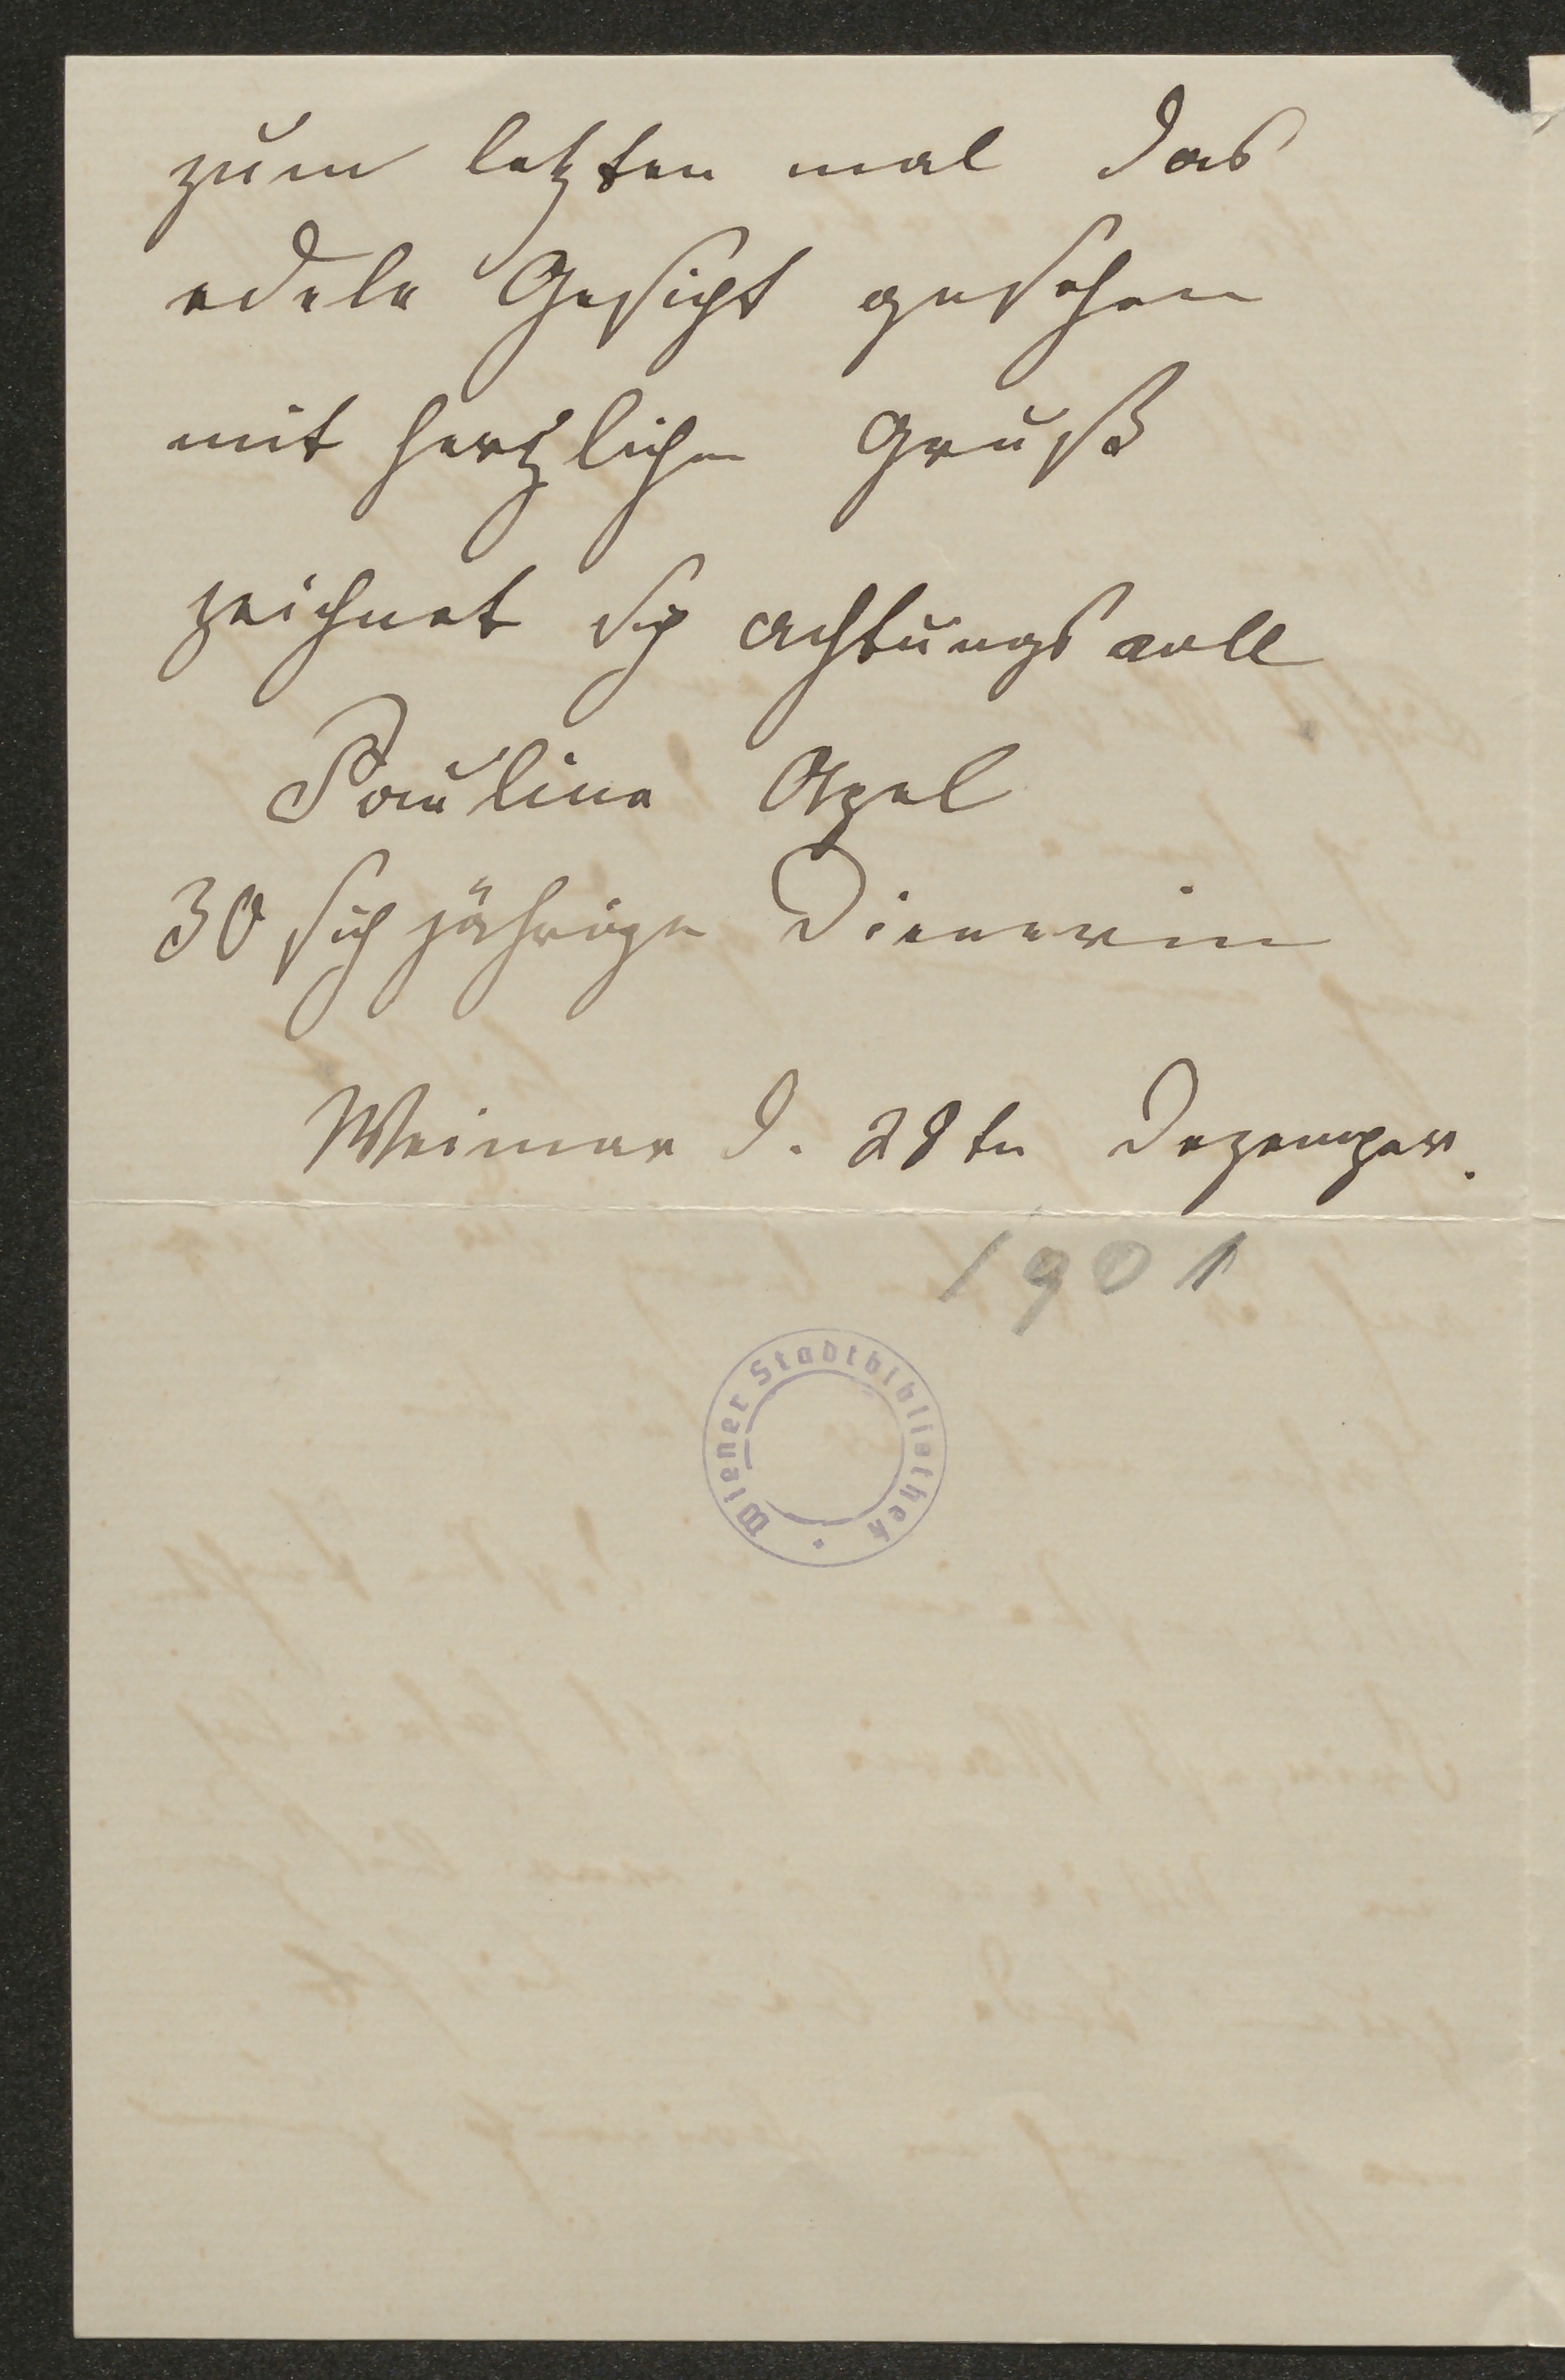 zum letzten mal das
edele Gesicht gesehen
mit hertzlichen Gruß
zeichnet sich achtungsvoll
Pauline Apel
30 sich jährige Dienerin
Weimar d. 28ten Dezemper.
1901
Wiener Stadtbibliothek